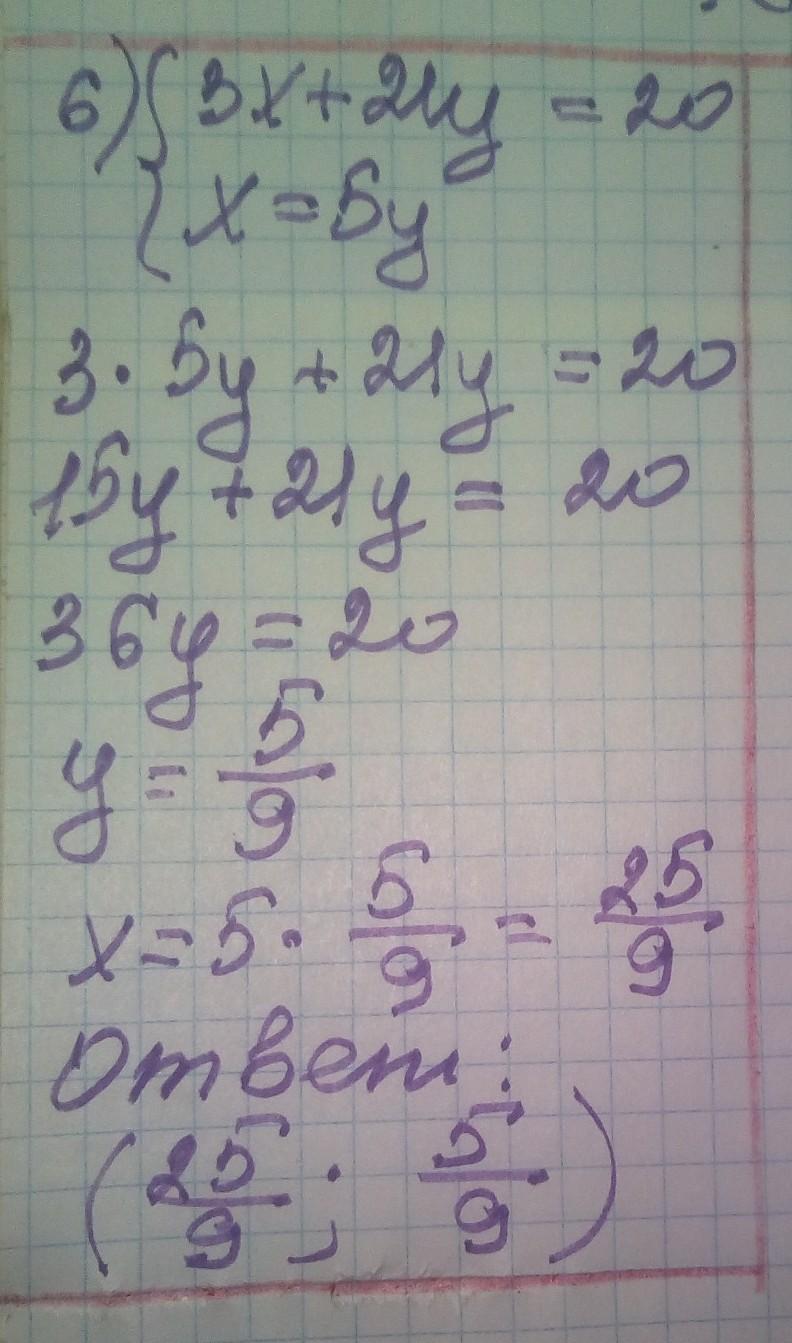 6) { 3x + 21y = 20
{ x = 5y
3 · 5y + 21y = 20
15y + 21y = 20
36y = 20
y = 5/9
x = 5 · 5/9 = 25/9
Ответ:
(25/9 ; 5/9)